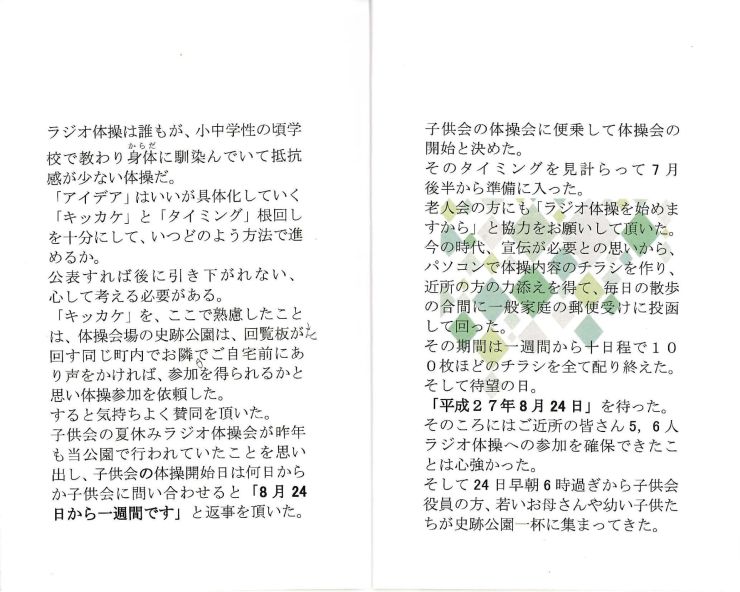 ラジオ体操は誰もが、小中学性の頃学
校で教わり身体に馴染んでいて抵抗
からだ
感が少ない体操だ。
「アイデア」はいいが具体化していく
「キッカケ」と「タイミング」根回し
を十分にして、いつどのよう方法で進
めるか。
公表すれば後に引き下がれない、
心して考える必要がある。
「キッカケ」を、ここで熟慮したこと
は、体操会場の史跡公園は、回覧板が
回す同じ町内でお隣でご自宅前にあ
り声をかければ、参加を得られるかと
思い体操参加を依頼した。
すると気持ちよく賛同を頂いた。
子供会の夏休みラジオ体操会が昨年
も当公園で行われていたことを思い
出し、子供会の体操開始日は何日から
か子供会に問い合わせると「8月24
日から一週間です」と返事を頂いた。
子供会の体操会に便乗して体操会の
開始と決めた。
そのタイミングを見計らって7月
後半から準備に入った。
老人会の方にも「ラジオ体操を始めま
すから」と協力をお願いして頂いた。
今の時代、宣伝が必要との思いから、
パソコンで体操内容のチラシを作り、
近所の方の力添えを得て、毎日の散歩
の合間に一般家庭の郵便受けに投函
して回った。
その期間は一週間から十日程で10
0枚ほどのチラシを全て配り終えた。
そして待望の日。
「平成27年8月24日」を待った。
そのころにはご近所の皆さん5,6人
ラジオ体操への参加を確保できたこ
とは心強かった。
そして24日早朝6時過ぎから子供会
役員の方、若いお母さんや幼い子供た
ちが史跡公園一杯に集まってきた。